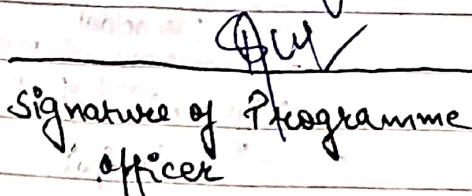 Signature of Programme
officer